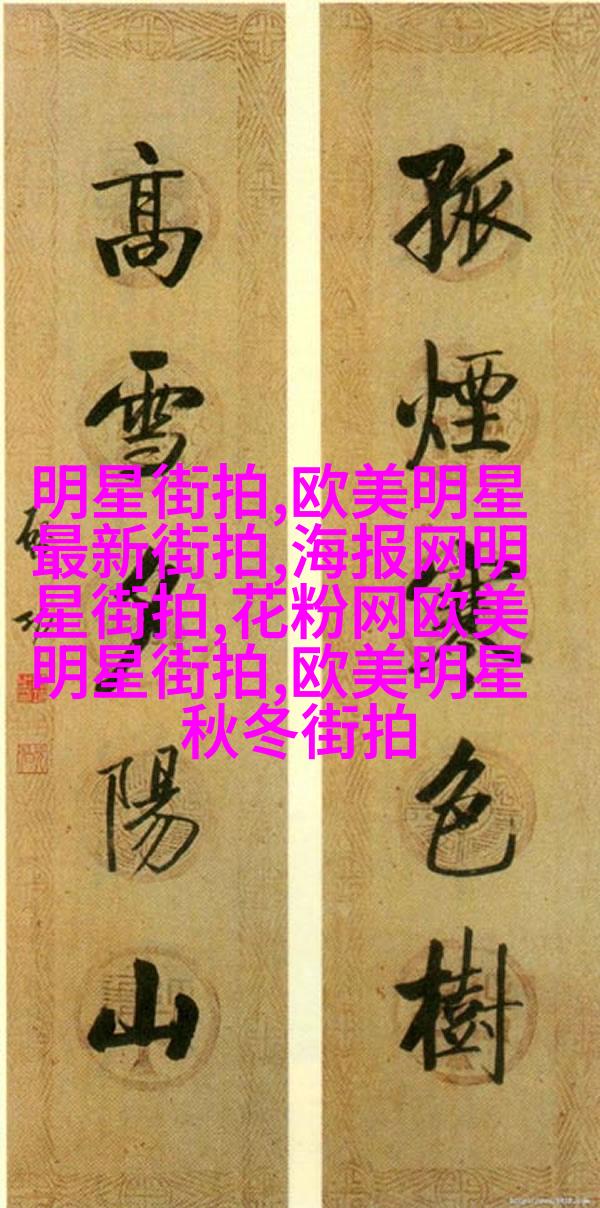 孤煙寒色樹
高雪夕陽山
明星街拍,欧美明星
最新街拍,海报网明
星街拍,花粉网欧美
明星街拍,欧美明星
秋冬街拍